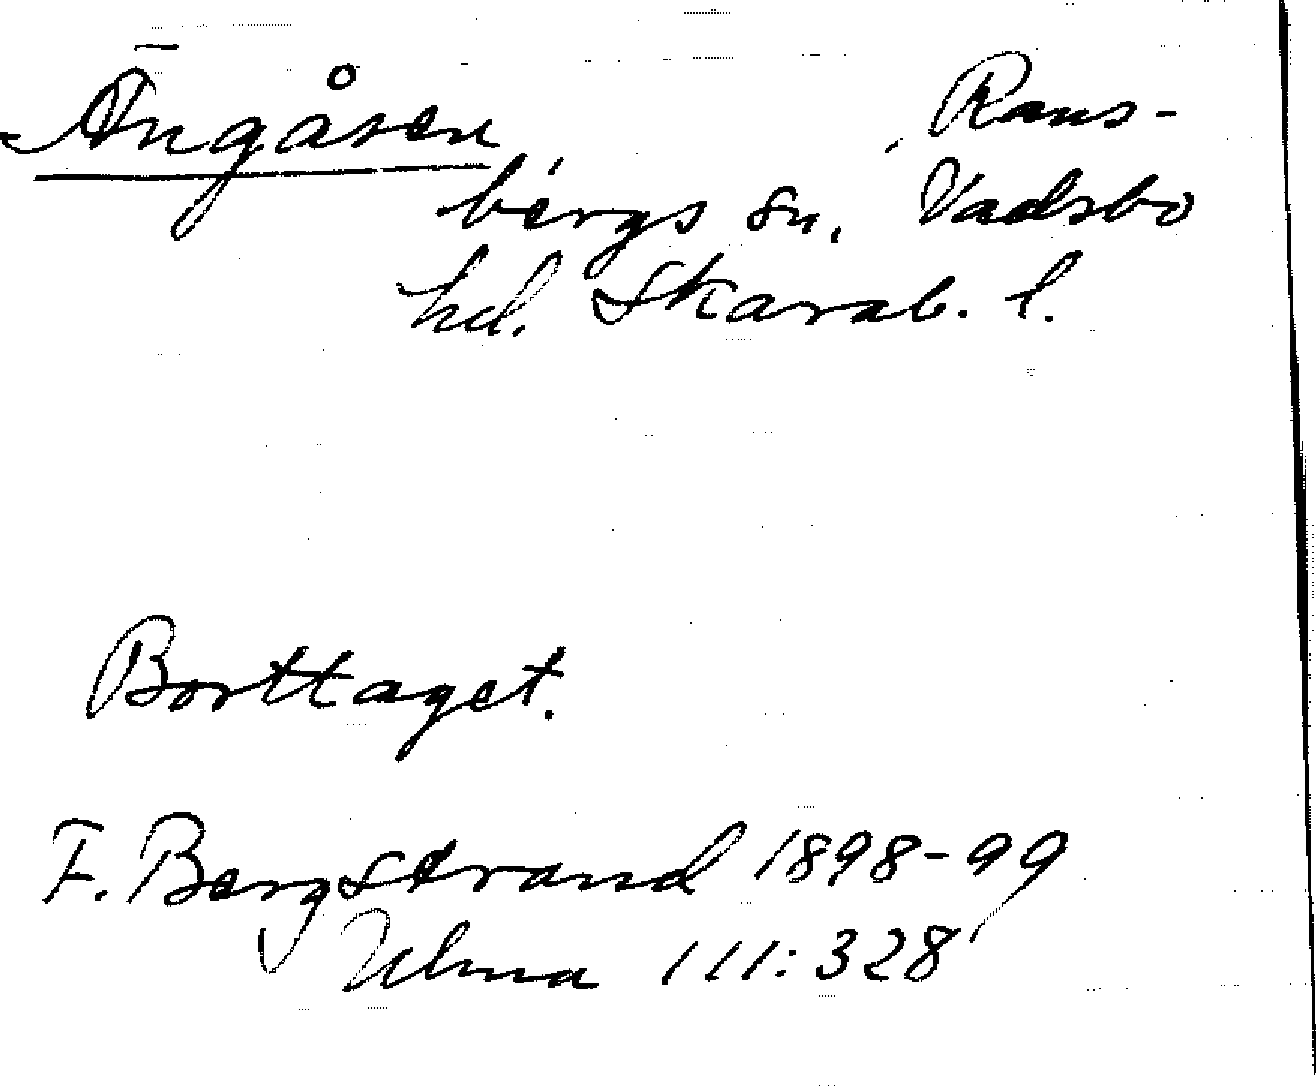 Ängåsen Rans-
bergs sn, Vadsbo
hd. Skarab. l.
Borttaget.
F. Bergstrand 1898-99
Ulma 111:328